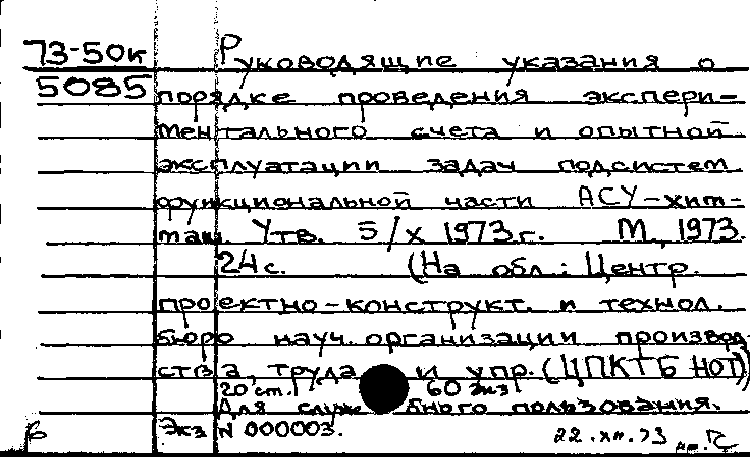 73-50к
5085
Руководящие указания о
порядке проведения экспери-
ментального счета и опытной
эксплуатации задач подсистем
функциональной части АСУ-хим-
маш. Утв. 5/X 1973 г. М., 1973.
24 с. (На обл.: Центр.
проектно-конструкт. и технол.
бюро науч. организации производ
ства, труда и упр. (ЦПКТБ НОТ))
20 см. 60 экз
Для служебного пользования.
Экз N 000003.
22.XII.73